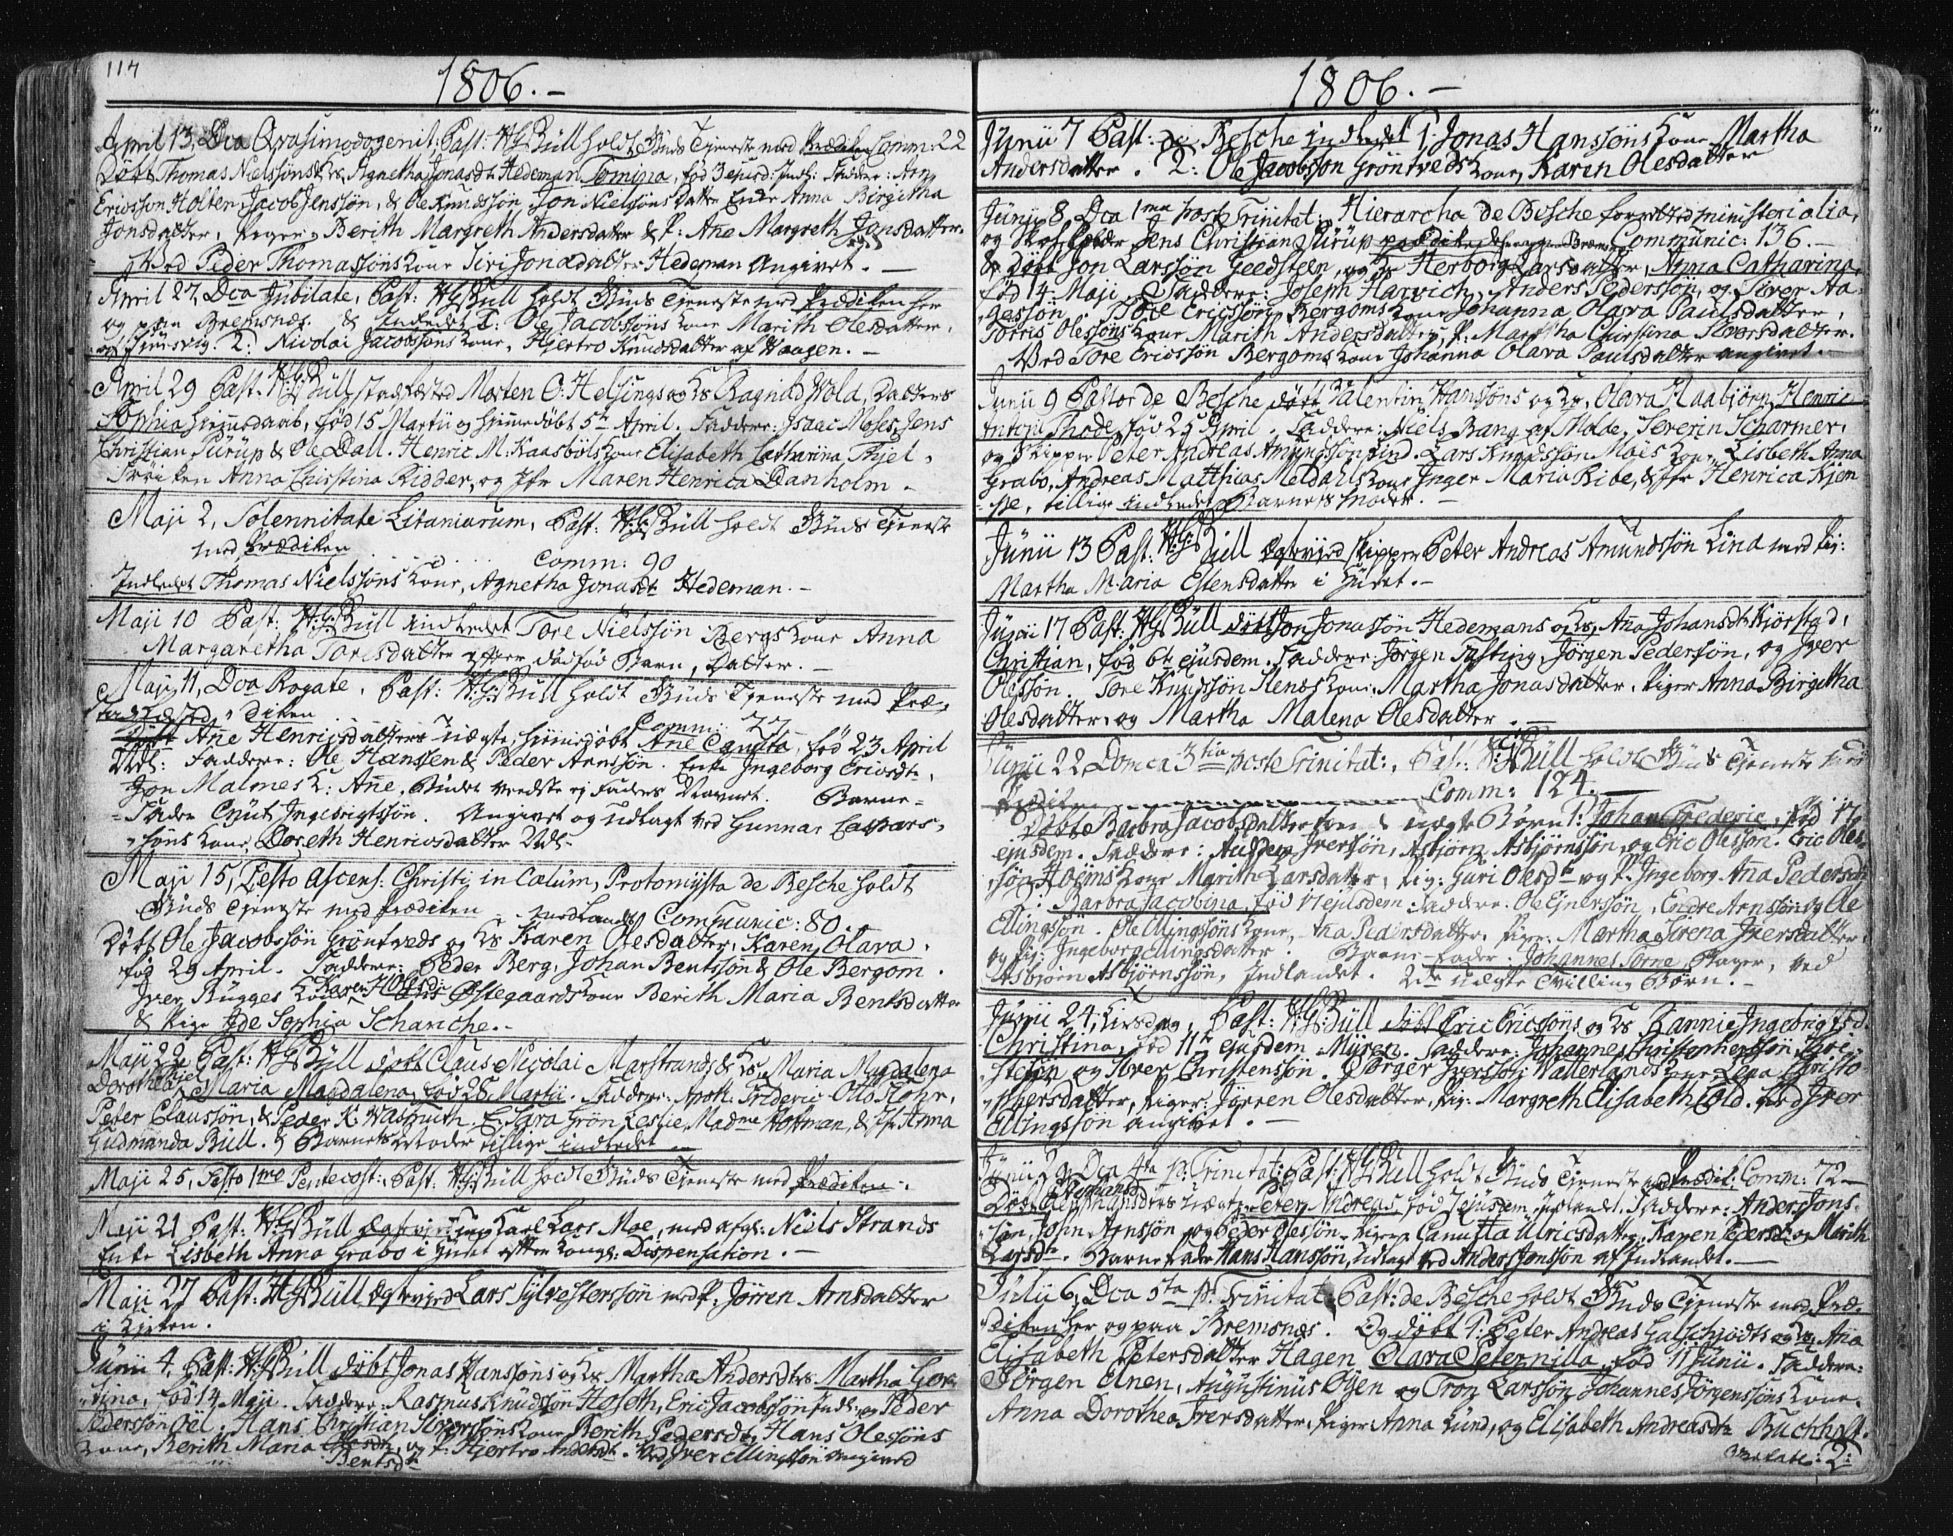 114
1806.-
April 13, Dca Qvasimodogenit: Past: H: G: Büll holdt Guds Tjeneste med Prædiken Comm: 22
Døbt Thomas Nielssøns & Hs Agnetha Jonasdr Hedeman Tomina, fød 3 ejusd: Indl: Faddere: Arn
Ericssøn Holten, Jacob Jenssøn, & Ole Knudssøn, Jon Nielssøns Datter Enke Anna Birgitha
Jonsdatter, Piger, Berith Margreth Andersdatter & P: Ane Margreth Jonsdatter.
Ved Peder Thomassøns Kone Siri Jonædatter Hedeman Angivet. -
April 27, Dca Jubilate, Past: H: G: Büll holdt Guds Tjeneste med Prædiken her
og paa Bremsnæs. & Indledet 1: Ole Jacobssøns Kone Marith Olesdatter,
2: Nicolai Jacobssøns Kone, Hjertro Knudsdatter af Vaagen. -
April 29 Past: H: G: Büll stadfæsted Morten O: Helsings og Hs Ragnild Wold, Datters
Sophia hiemedaab, fød 15 Martii og hiemedøbt 5te April. Faddere: Isaac Moses, Jens
Christian Pürüp & Ole Dall. Henric M. Kaasbøls Kone Elisabeth Catharina Thiel,
Frøiken Anna Christina Ridder, og Jfr Maren Henrica Danholm -
Maji 2, Solennitate Litaniarum, Past: H: G: Büll holdt Guds Tjeneste
med Prædiken Comm: 90
Indledet Thomas Nielssøns Kone, Agnetha Jonasdr Hedeman. -
Maji 10 Past: H: G: Büll indledet Tore Nielssøn Bergs Kone Anna
Margaretha Toresdatter efter dødfød Barn, Datter. -
Maji 11, Dca Rogate, Past: H: G: Büll holdt Guds Tjeneste med Præ-
stadfæsted diken Comm: 77
Ane Henricsdatters uægte hiemedøbt Ane Canutta, fød 23 April
Udl: Faddere: Ole Hanssen & Peder Arnssøn. Enke Ingeborg Ericsdr,
Jon Malmes K: Ane, Barne-
Fader Cnut Ingebrigtssøn. Angivet og udlagt ved Gunnar Caspars-
søns Kone, Doreth Henricsdatter Udl-
Maji 15, Festo Ascens: Christi in Coelum, Protomysta de Besche holdt
Guds Tjeneste med Prædiken Communic: 80.
Døbt Ole Jacobssøn Grøntveds og Hs Karen Olesdatter, Karen Olava,
fød 29 April. Faddere: Peder Berg, Johan Bentssøn & Ole Bergom.
Iver Rügges Kone Karen Olesdr Østegaards Kone Berith Maria Bentsdatter
& Pige Ide Sophia Schanche. -
Maji 22 Past: H: G: Büll døbt Claus Nicolai Marstrands & Hs Maria Magdalena
Dorothe Maria Magdalena, fød 28 Martii. Faddere: Apoth: Frideric Otto Flohr,
Peter Claussøn, & Peder K. Wasmuth. E: Sara Grøn Leslie, Madme Hofman, & Jfr Anna
Gudmanda Büll. & Barnets Moder tillige indledet -
Maji 25, Festo 1mo Pentecost: Past: H: G: Büll holdt Guds Tjeneste med Prædiken -.
Maji 21 Past: H: G: Büll Karl Lars Moe, med afgl: Niels Strands
Enke Lisbeth Anna Grabo i huset efter Kongl: Dispensation. -
Maji 27 Past: H: G: Büll Egtevied Lars Sylvesterssøn med P: Jørren Arnsdatter
i Kirken.
Junii 4, Past: H: G: Büll døbt Jonas Hanssøns og Hs Martha Andersdtrs Martha Ger-
tina, fød 14 Maji. Faddere: Rasmus Knüdssøn Hoseth, Eric Jacobssøn og Peder
Pederssøn Oel. Hans Christian Iverssøns Kone Berith Pedersdtr, Hans Olessøns
Kone, Berith Maria Bentsdr, og P: Hjertro Andersdr. Ved Iver Ellingssøn Angived
1806.-
Junii 7 Past: de Besche indledet 1: Jonas Hanssøns Kone Martha
Andersdatter. 2: Ole Jacobssøn Grøntveds Kone, Karen Olesdatter
Junii 8, Dca 1ma post Trinitat: Hierarcha de Besche forretted ministerialia,
og Skoleholder Jens Christian Pürüp Communic: 136. -
& Døbt Jon Larssøn Geedsteen, og Hs Herborg Larsdatter, Anna Catharina,
fød 14 Maji. Faddere: Joseph Harvich, Anders Pederssøn, og Iver Aa-
gessøn. Tore Ericssøn Bergoms Kone Johanna Olava Paulsdatter,
Torris Olessøns Kone Marith Andersdatter, P: Martha Christina Iversdatter.
Ved Tore Ericssøn Bergoms Kone Johanna Olava Paulsdatter angivet. -
Junii 9 Pastor de Besche døbt Valentin Hanssøns og Hs, Olava Maabjørn, Henric
Anton Thode, fød 25 April. Faddere: Niels Bang af Molde, Severin Scharmer,
og Skipper Peter Andreas Amundssøn Lind. Lars Knudssøn Moes Kone, Lisbeth Anna
Grabo, Andreas Matthias Meldahls Kone Inger Maria Ribe, & Jfr Henrica Kjem
pe, tillige indledet Barnets Moder. -
Junii 13 Past: H: G: Büll Egtevied Skipper Peter Andreas Amundssøn Lind med Pig:
Martha Maria Estensdatter i Huset. -
Junii 17 Past: H: G: Büll døbt Jon Jonassøn Hedemans & Hs, Ana Johansdr Kjørstad,
Christian, fød 6te ejusdem. Faddere: Jørgen Fasting, Jørgen Pederssøn, og Iver
Olessøn. Tore Knudssøn Nends Kone, Martha Jonasdatter. Piger Anna Birgitha
Olesdatter, og Martha Malena Olesdatter. -
Junii 22 Domca 3tia post Trinitat:, Past: H: G: Büll holdt Guds Tjeneste med
Prædiken Comm: 124. -
Døbt Barbra Jacobsdatters uægte Børn 1: Johan Frederic, fød 17
ejusdem. Faddere: Audsten Iverssøn, Asbjørn Asbjørnssøn, og Eric Olessøn. Eric Oles-
søn Holms Kone Marith Larsdatter, Pig: Guri Olesdr og P: Ingeborg Ana Pedersdr
2: Barbra Jacobina, fød 17 ejusdem. Faddere: Ole Ejnerssøn, Endre Arnssøn og Ole
Ellingssøn. Ole Ellingssøns Kone, Ana Pedersdatter. Piger: Martha Serena Iversdatter,
og Pig: Ingeborg Ellingsdatter. Barne-Fader: Johannes Torne Skager, ved
Asbjørn Asbjørnssøn, Indlandet. 2de uægte Tvilling Børn. -
Junii 24, Tirsdag, Past: H: G: Büll døbt Eric Ericssøns og Hs Rannie Ingebrigtsd.
Christina, fød 11te ejusdem Myren. Faddere: Johannes Christopherssøn,
og Iver Christenssøn. Børger Iverssøn Watterlands Kone Lena Christo-
phersdatter, Piger: Jørren Olesdatter, Pig: Margreth Elisabeth Cold. Ved Iver
Ellingssøn angivet. -
Junii 29, Dca 4ta p: Trinitat: Past: H: G: Büll holdt Guds Tjeneste med Prædik: Comm: 72 -
Døbt uægte, Peter Andreas, fød 7 ejusdem, Indlandet. Faddere: Anders Jons-
søn, John Arnssøn, og Peder Olessøn. Piger Canutta Ulricsdatter, Karen Pedersdr og Marith
Larsdr. Barnefader Hans Hanssøn, Udlagt ved Anders Jonssøn af Indlandet. -
Julii 6, Dca 5ta p: Trinitat: Past: de Besche holdt Guds Tjeneste med Præ-
diken her og paa Bremsnæs. Og døbt 1: Peter Andreas Galschjødts og Hs, Ana
Elisabeth Petersdatter Hagen, Olava Peternilla, fød 11 Junii. Faddere:
Jørgen Enen, Augustinus Øyen og Tron Larssøn, Johannes Jørgenssøns Kone
Anna Dorothea Iversdatter, Piger Anna Lund, og Elisabeth Andreasdr Buchholt.
2: